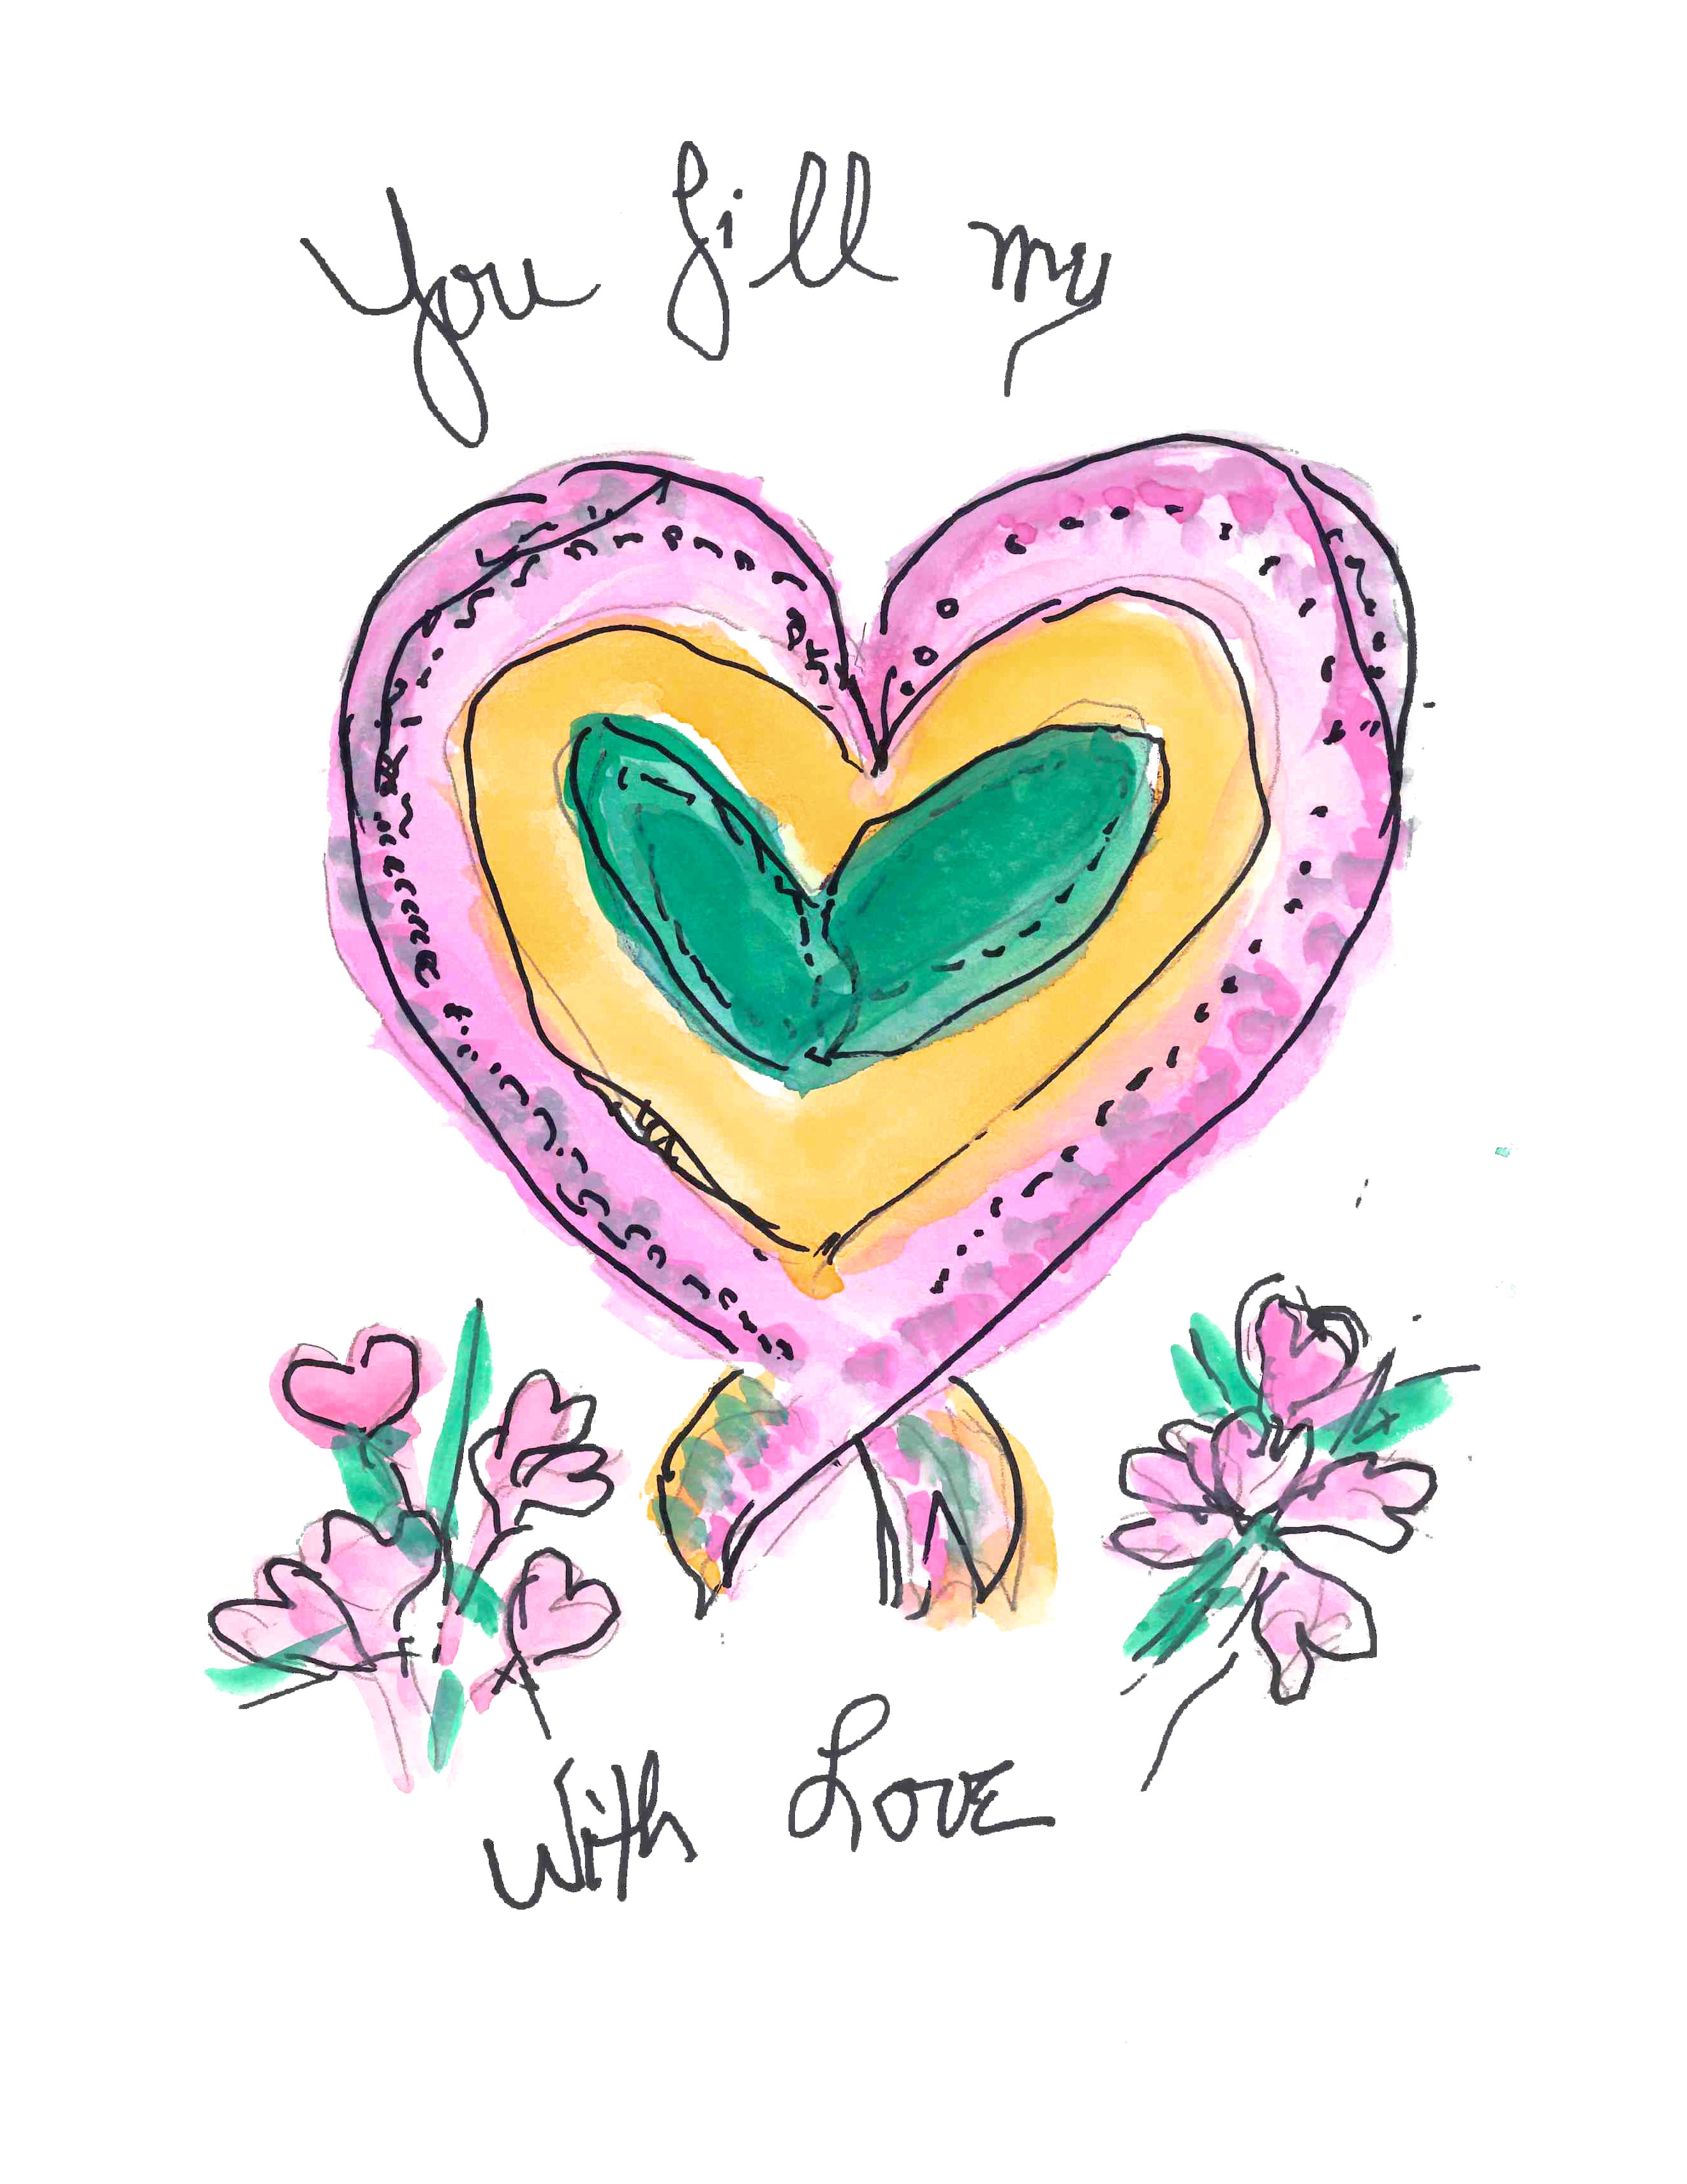 You fill my
With Love